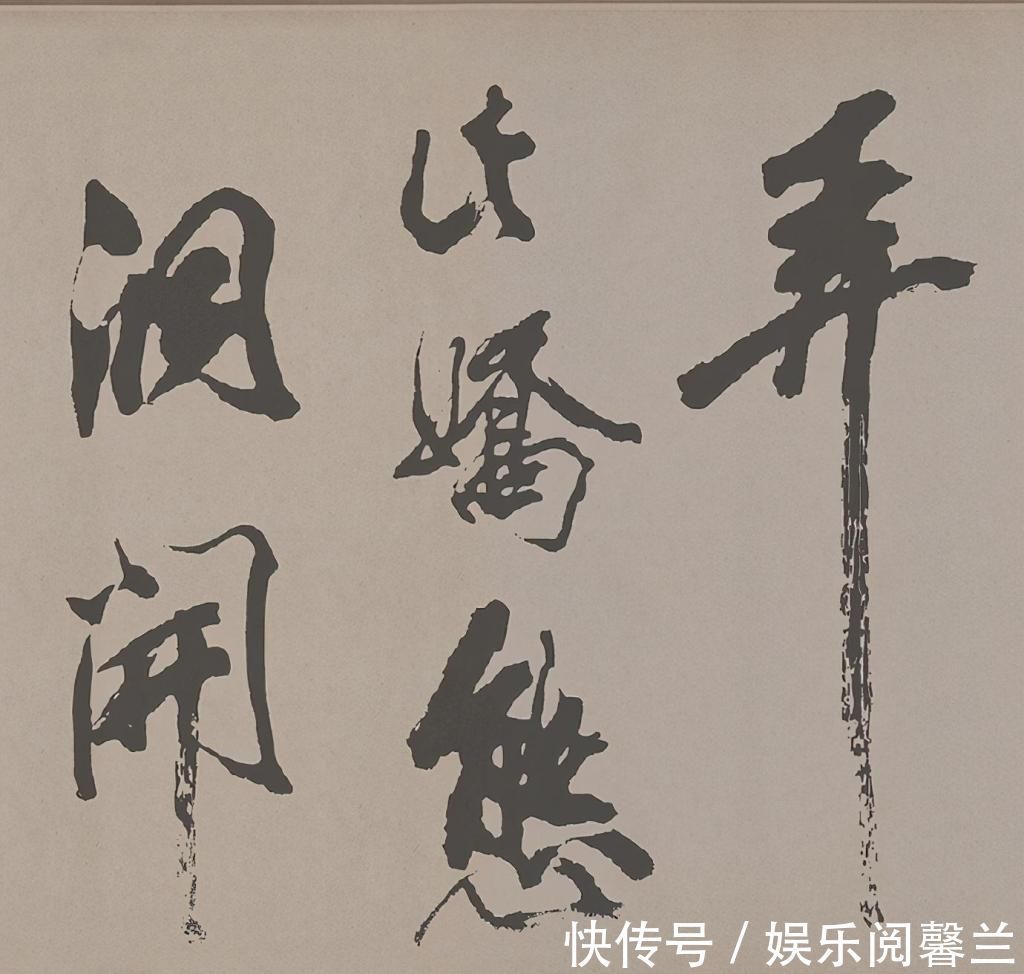 弄
此嬌態
洞開
快传号 / 娱乐阅馨兰